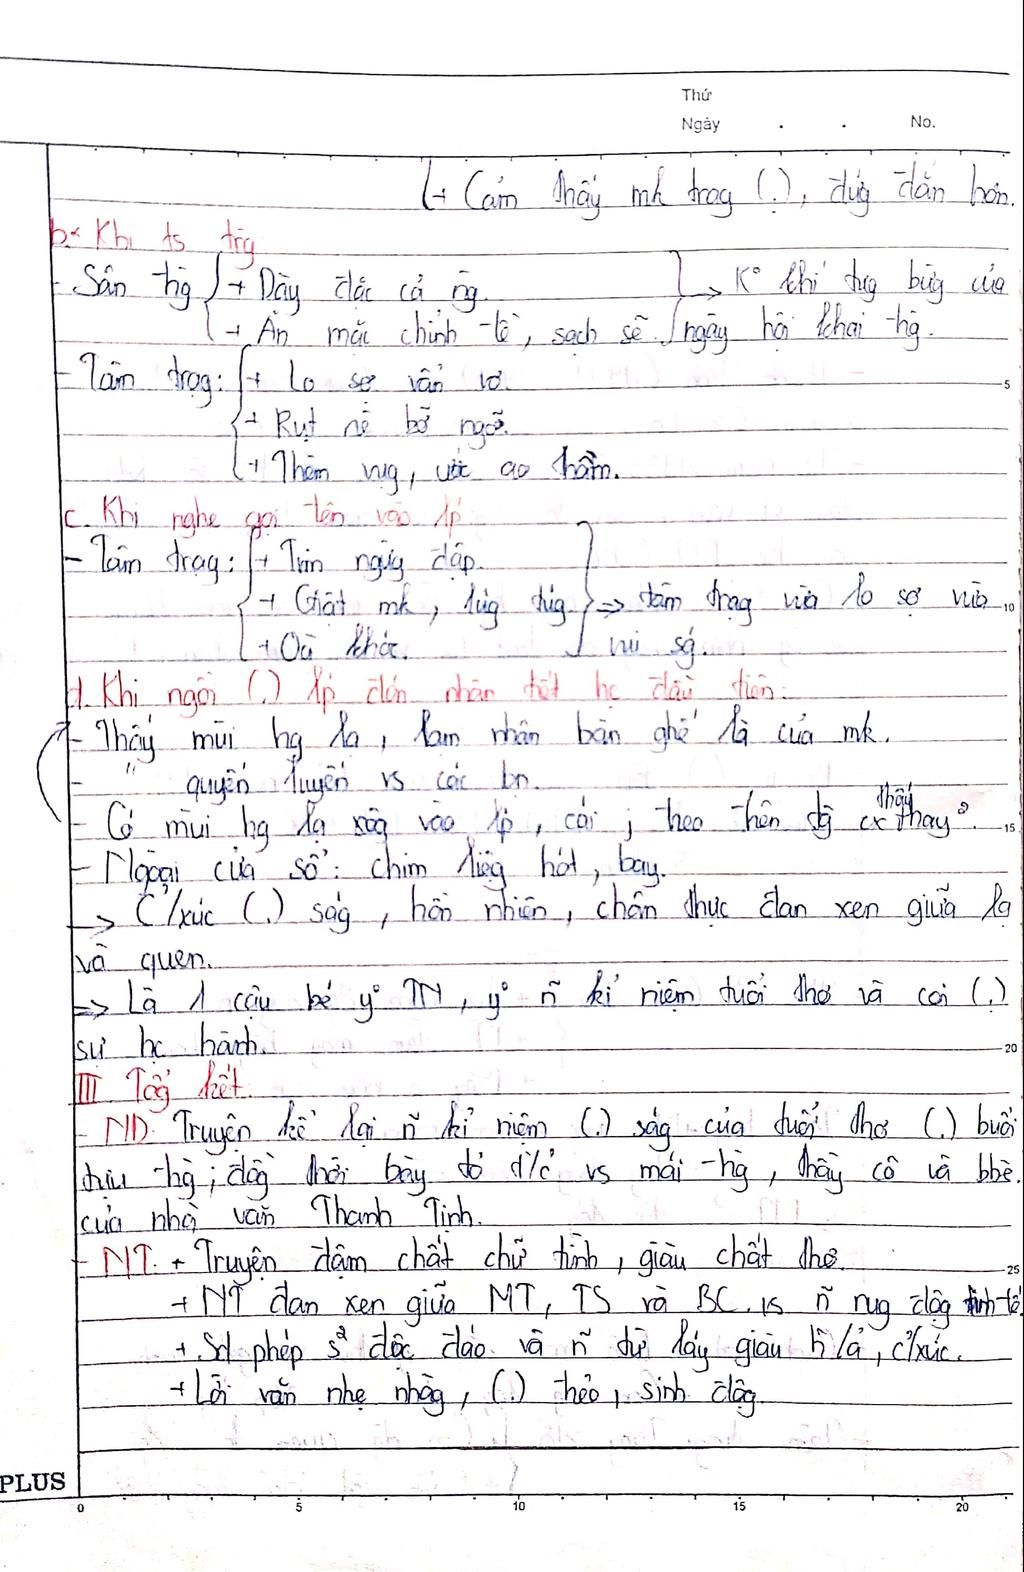 Thứ
Ngày . . No.
+ Cảm thấy mk trag (.), đúg đắn hơn.
b. Khi ts trg
- Sân trg + Dày đặc cả ng. → K° khí tưg bừg của
+ Ăn mặc chỉnh tề, sạch sẽ. ngày hội khai trg.
- Tâm trạg: + Lo sợ vẩn vơ 5
+ Rụt rè bỡ ngỡ.
+ Thèm vụg, ước ao thầm.
c. Khi nghe gọi tên vào lp
- Tâm trạg: + Tim ngừg đập.
+ Giật mk, lúg túg => tâm trạg vừa lo sợ vừa 10
+ Oà khóc. vui sg.
d. Khi ngồi (.) lp đón nhận tiết hc đầu tiên:
- Thấy mùi hg lạ, lạm nhận bàn ghế là của mk.
- " quyến luyến vs các bn.
- Có mùi hg lạ xôg vào lp, cái j theo trên tg cx thấy hay². 15
- Ngoài cửa sổ: chim liệg hót, bay.
→ C²/xúc (.) ság, hồn nhiên, chân thực đan xen giữa lạ
và quen.
=> Là 1 cậu bé y° TN, y° ñ kỉ niệm tuổi thơ và coi (.)
sự hc hành. 20
III Tổg kết.
- ND. Truyện kể lại ñ kỉ niệm (.) ság của tuổi thơ (.) buổi
tựu trg; đồg thời bày tỏ t/c² vs mái trg, thầy cô và bbè.
của nhà văn Thanh Tịnh.
- NT. + Truyện đậm chất chữ tình, giàu chất thơ. 25
+ NT đan xen giữa MT, TS và BC. vs ñ rug độg tinh tế
+ Sd phép s² độc đáo và ñ từ láy giàu h/ả, c²/xúc.
+ Lời văn nhẹ nhàg, (.) trẻo, sinh độg.
PLUS
0 5 10 15 20